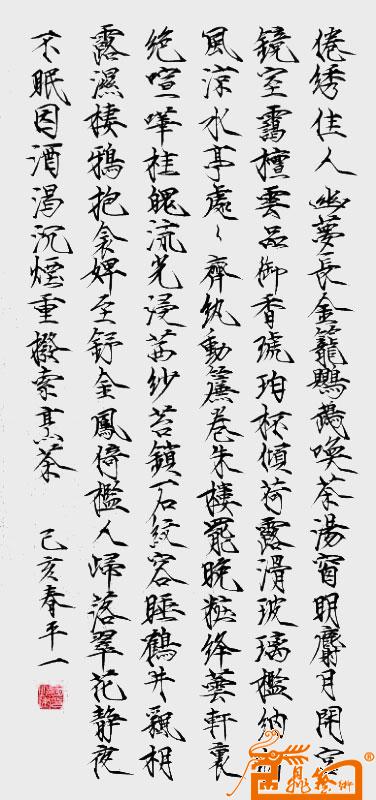 倦綉佳人幽夢長金籠鸚鵡喚茶湯窗明麝月開宮
鏡室靄檀雲品御香琥珀杯傾荷露滑玻璃檻納
風涼水亭處々齊紈動簾卷朱樓罷晚粧絳蕓軒裏
絶喧嘩桂魄流光浸茜紗苔鎖石紋容睡鶴井飄桐
露濕棲鴉抱衾婢至舒金鳳倚檻人歸落翠花静夜
不眠因酒渴沉煙重撥索烹茶
己亥春平一